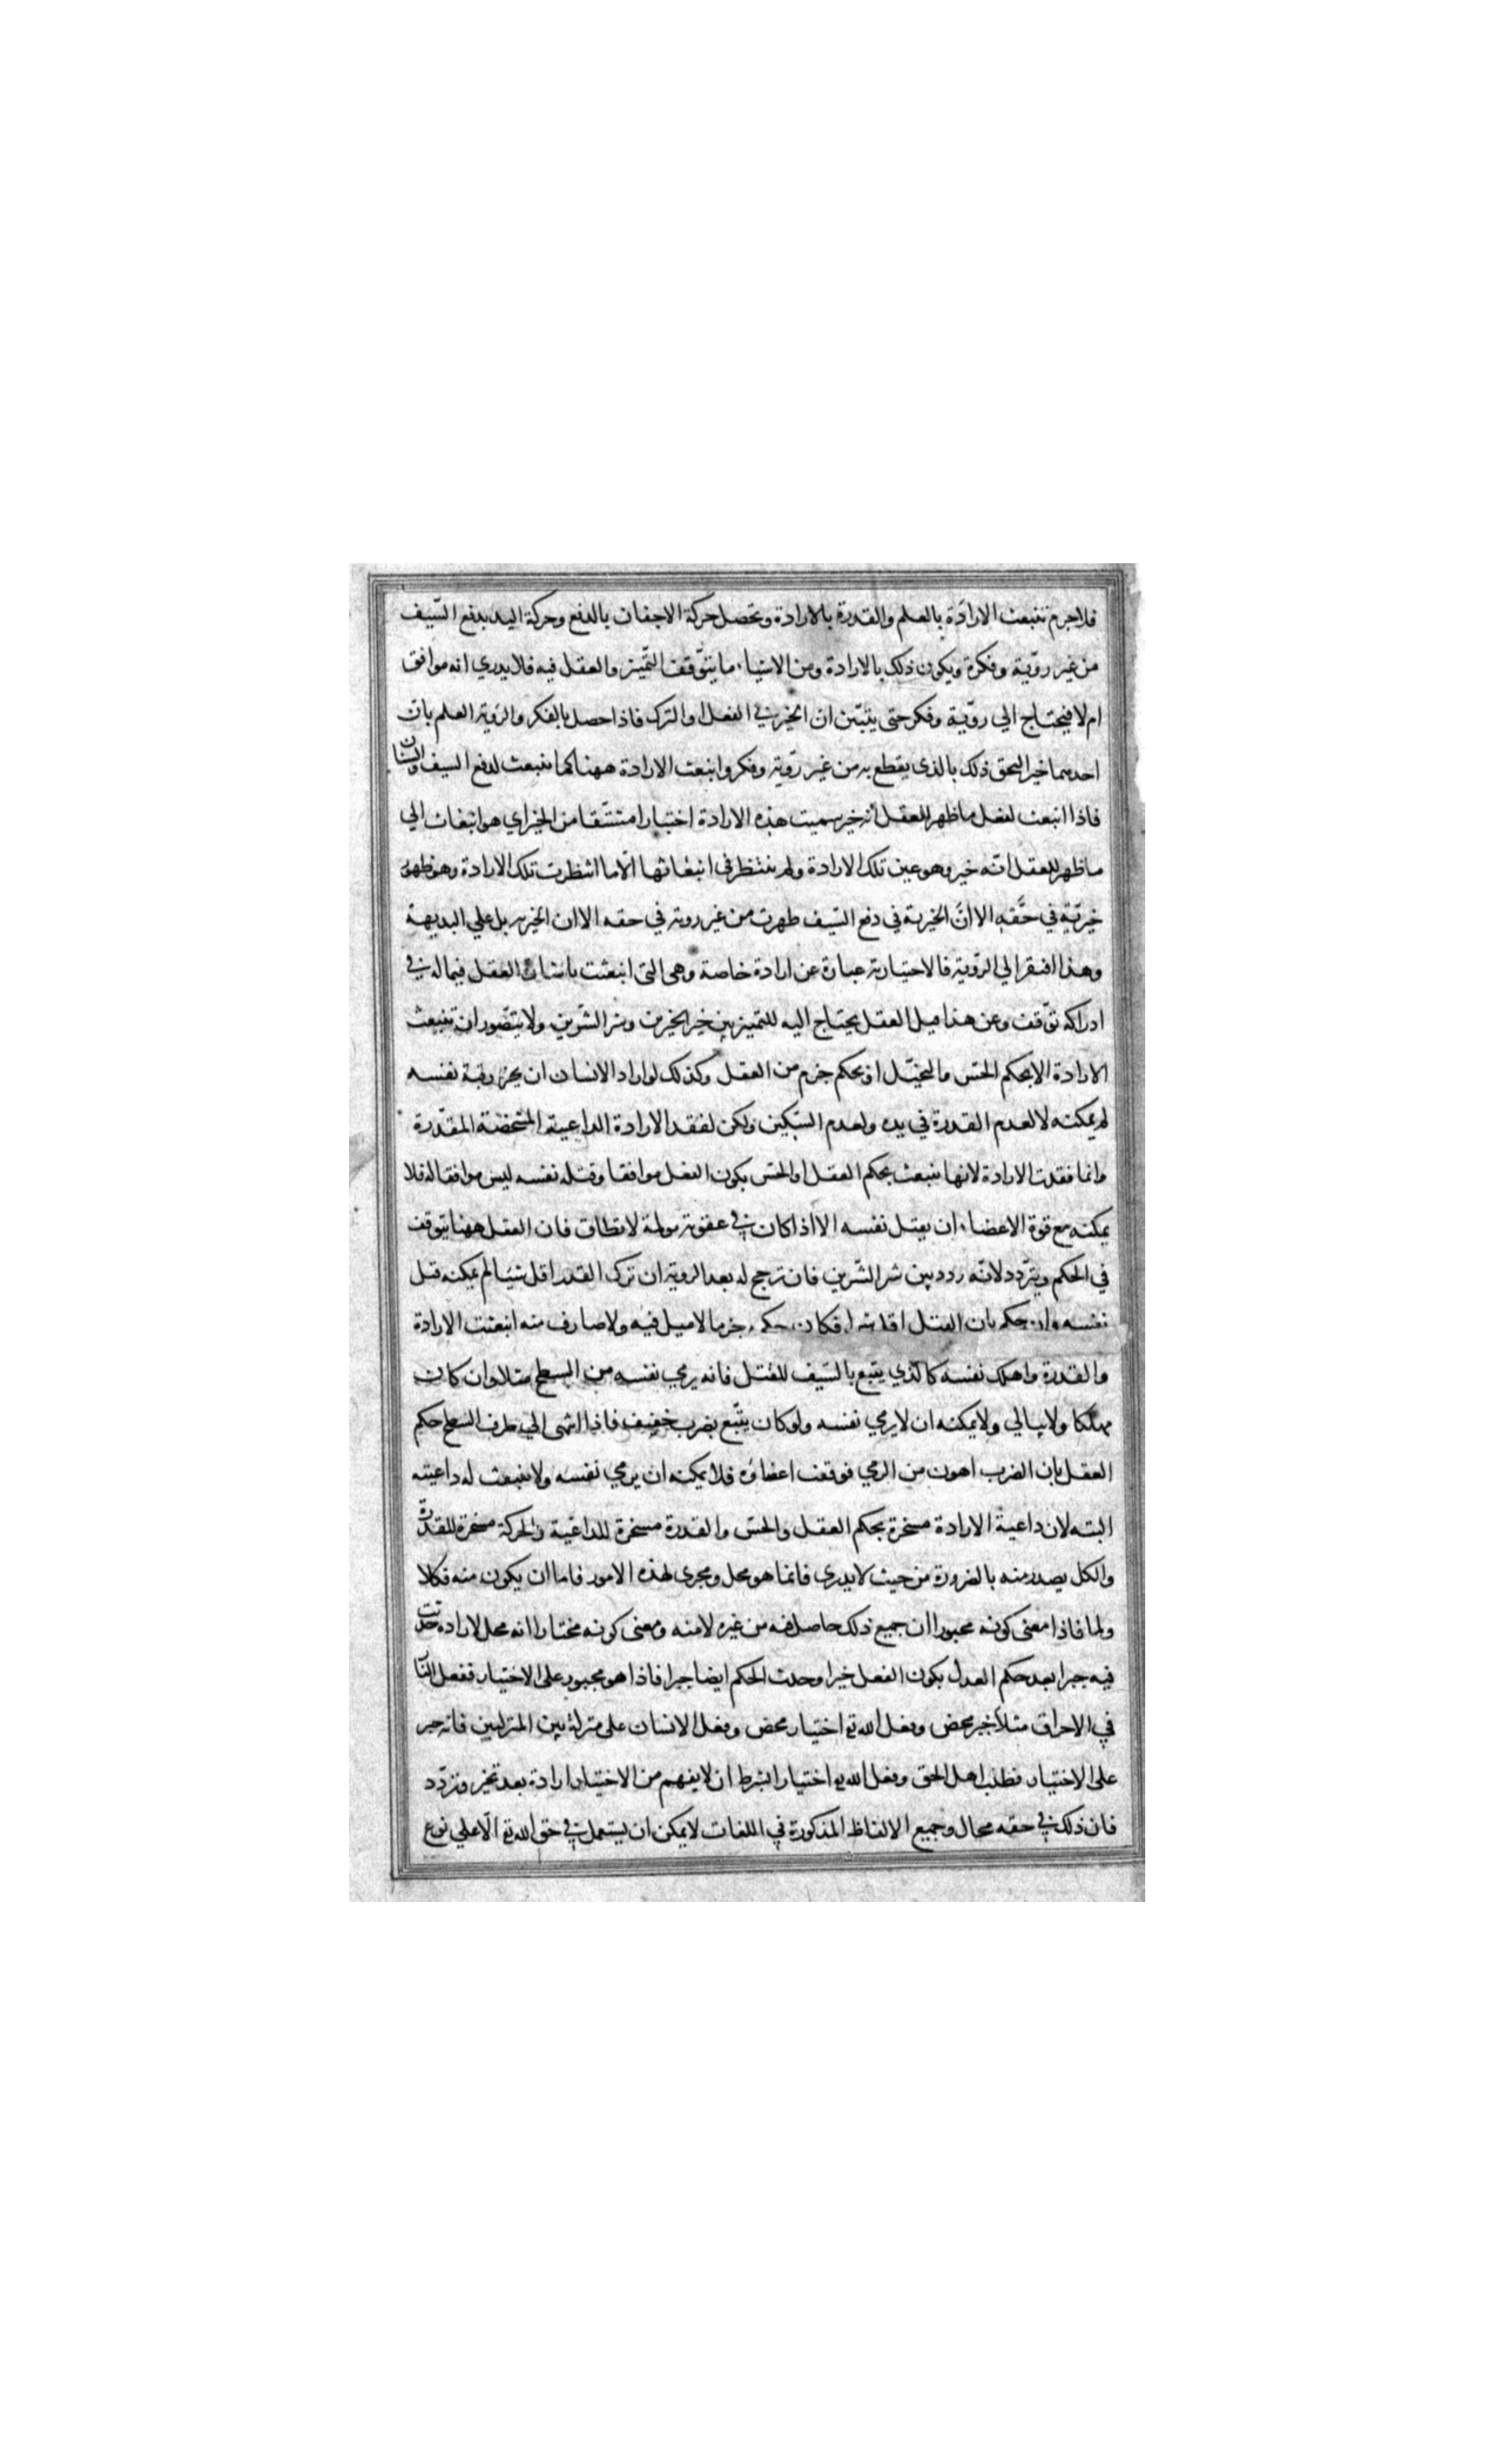 فلاجرم تنبعث الارادة بالعلم والقدرة بالارادة وتحصل حركة الاجفان بالدفع وحركة اليد بدفع السّيف
من غير روّية وفكرة ويكون ذلك بالارادة ومن الاشياء ما يتوّقف التّميز والعقل فيه فلا يدري انه موافق
ام لا فيحتاج الي روّية وفكر حتى يتبيّن ان الخير في الفعل او الترك فاذا حصل بالفكر والرويه العلم بان
احدهما خير التحق ذلك بالذي يقطع به من غير روّيه وفكر وانبعث الارادة ههنا كما تنبعث لدفع السيف والسنان
فاذا انبعث لفعل ما ظهر للعقل انه خير سميت هذه الارادة اختيارا مشتقا من الخير اي هو انبعاث الي
ما ظهر للعقل انّه خير وهو عين تلك الارادة ولم ينتظر في انبعاثها الّا ما انتظرت تلك الارادة وهو ظهور
خيريّة في حقّه الا انّ الخيرية في دفع السّيف ظهرت من غير رويه في حقه الا ان الخيريه بل علي البديهة
وهذا افتقر الي الرّويّة فالاختيار عبارة عن ارادة خاصة وهي التى انبعثت باشارة العقل فيما له في
ادراكه توّقف وعن هذا ميل العقل يحتاج اليه للتميز بين خير الخيرين وشر الشّرين ولا يتصّور ان تنبعث
الارادة الا بحكم الحسّ والتخيّل او بحكم جزم من العقل وكذلك لو اراد الانسان ان يحز رقبة نفسه
لم يمكنه لا لعدم القدرة في يده ولعدم السّكين ولكن لفقد الارادة الداعية المشخصة المقدّرة
وانما فقدت الارادة لانها تنبعث بحكم العقل او الحسّ بكون الفعل موافقا وقتله نفسه ليس موافقا له فلا
يمكنه مع قوة الاعضاء ان يقتل نفسه الا اذا كان في عقوبة مولمة لا تطاق فان العقل ههنا يتوقف
في الحكم ويتردد لانّه ردد بين شر الشّرين فان ترجح له بعد الرويه ان ترك القدر اقل شيئا لم يمكنه قتل
نفسه وان حكم بان القتل اقل شرا فكان حكمه جزما لا ميل فيه ولا صارف منه انبعثت الارادة
والقدرة واهلك نفسه كالذي يتبع بالسّيف للقتل فانه يرمي نفسه من السطح مثلا وان كان
مهلكا ولا يبالي ولا يمكنه ان لا يرمي نفسه ولو كان يتّبع بضرب خفيف فاذا انتهى الي طرف السطح حكم
العقل بان الضرب اهون من الرمي فوقفت اعضاؤه فلا يمكنه ان يرمي نفسه ولا تنبعث له داعيته
البته لان داعية الارادة مسخرة بحكم العقل والحسّ والقدرة مسخرة للداعية والحركة مسخرة للقدرة
والكل يصدر منه بالضرورة من حيث لا يدري فانما هو محل ومجرى لهذه الامور فاما ان يكون منه فكلا
ولما فاذا معنى كونه مجبورا ان جميع ذلك حاصل فيه من غيره لا منه ومعنى كونه مختارا انه محل لاراده حدثت
فيه جبرا بعد حكم العدل بكون الفعل خيرا وحدث الحكم ايضا جبرا فاذا هو مجبور على الاختيار ففعل النار
في الاحراق مثلا جبر محض وفعل الله تع اختيار محض وفعل الانسان على منزلة بين المنزلتين فانه جبر
على الاختيار فطلب اهل الحق وفعل الله تع اختيار الشرط ان لا يفهم من الاختيار ارادة بعد تحير وتردّد
فان ذلك في حقه محال وجميع الالفاظ المذكورة في اللغات لا يمكن ان يستعمل في حق الله تع الّا علي نوع